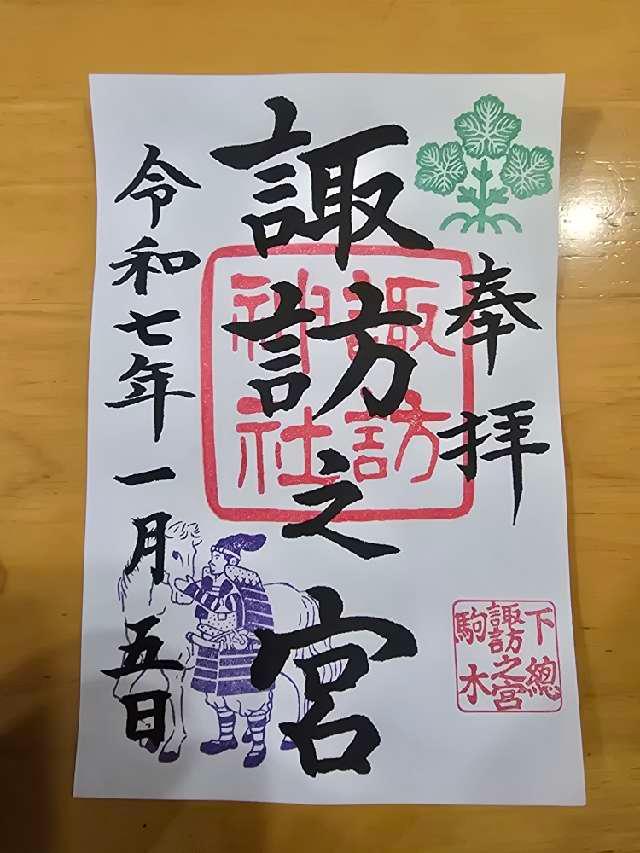 奉拝
諏訪之宮
諏訪神社
令和七年一月五日
下總
諏訪之宮
駒木